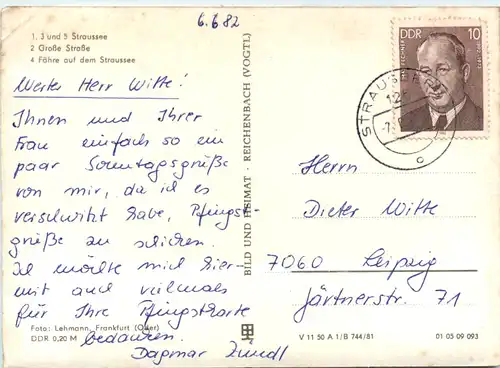 6.6.82
1, 3 und 5 Straussee
2 Große Straße
4 Fähre auf dem Straussee
Werter Herr Witte!
Ihnen und Ihrer
Frau einfach so ein
paar Sonntagsgrüße
von mir, da ich es
verschwitzt habe, Pfingst-
grüße zu schicken.
Ich möchte mich hier-
mit auch vielmals
für Ihre Pfingstkarte
bedanken.
Dagmar
Foto: Lehmann, Frankfurt (Oder)
DDR 0,20 M
BILD UND HEIMAT · REICHENBACH (VOGTL)
DDR 10
STRAUSBERG
Herrn
Dieter Witte
7060 Leipzig
Gärtnerstr. 71
V 11 50 A 1/B 744/81
01 05 09 093